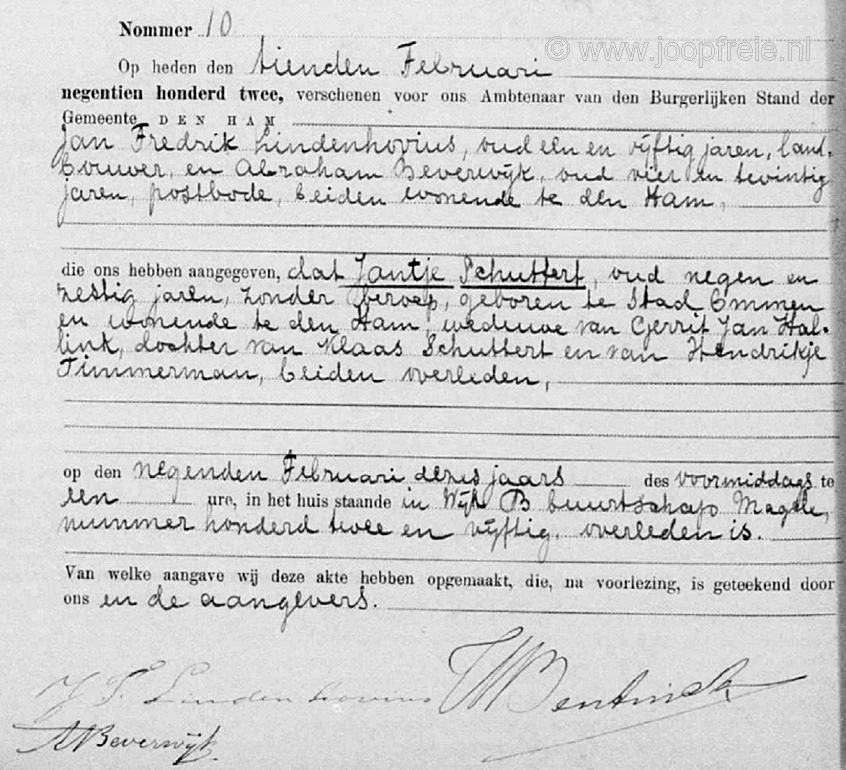 Nommer 10
© www.joopfreie.nl
Op heden den tienden Februari
negentien honderd twee, verschenen voor ons Ambtenaar van den Burgerlijken Stand der
Gemeente DEN HAM
Jan Fredrik Lindenhovius, oud een en vijftig jaren, land-
bouwer, en Abraham Beverwijk, oud vier en twintig
jaren, postbode, beiden wonende te den Ham,
die ons hebben aangegeven, dat Jantje Schuttert, oud negen en
zestig jaren, zonder beroep, geboren te Stad Ommen
en wonende te den Ham, weduwe van Gerrit Jan Hal-
link, dochter van Klaas Schuttert en van Hendrikje
Timmerman, beiden overleden,
op den negenden Februari dezes jaars des voormiddags te
een ure, in het huis staande in Wijk B buurtschap Magele,
nummer honderd twee en vijftig, overleden is.
Van welke aangave wij deze akte hebben opgemaakt, die, na voorlezing, is geteekend door
ons en de aangevers.
J F Lindenhovius Bentinck
A Beverwijk